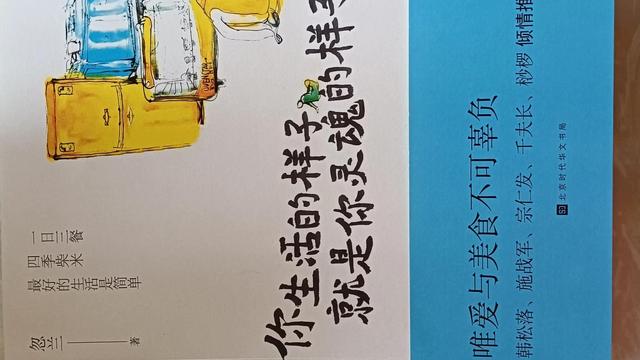 忽兰 著
一日三餐
四季柴米
最好的生活是简单
你生活的样子
就是你灵魂的样子
唯爱与美食不可辜负
韩松落、施战军、宗仁发、千夫长、桫椤 倾情推
北京时代华文书局